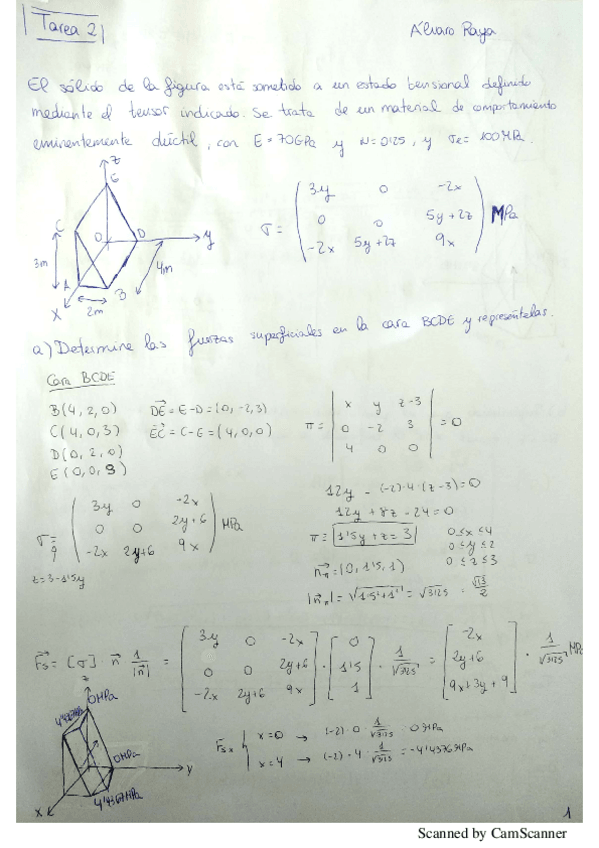 Tarea 2
Álvaro Raya
El sólido de la figura está sometido a un estado tensional definido
mediante el tensor indicado. Se trata de un material de comportamiento
eminentemente dúctil, con E = 70GPa y N=0'25, y σe = 100MPa.
z
G
C
O
D
y
3m
4m
A
B
x
2m
σ = ( 3y 0 -2x
0 0 5y+2z
-2x 5y+2z 9x ) MPa
a) Determine las fuerzas superficiales en la cara BCDE y represéntelas.
Cara BCDE
B(4, 2, 0)
C(4, 0, 3)
D(0, 2, 0)
E(0, 0, 3)
DE = E-D = (0, -2, 3)
EC = C-E = (4, 0, 0)
π = | x y z-3
0 -2 3
4 0 0 | = 0
12y - (-2)·4·(z-3) = 0
12y + 8z - 24 = 0
π = 1'5y + z = 3
0≤x≤4
0≤y≤2
0≤z≤3
n = (0, 1'5, 1)
|n| = √1'5²+1² = √3'25 = √13/2
σ = ( 3y 0 -2x
0 0 2y+6
-2x 2y+6 9x ) MPa
z = 3-1'5y
Fs = [σ] · n · 1/|n| = [ 3y 0 -2x
0 0 2y+6
-2x 2y+6 9x ] · [ 0
1'5
1 ] · 1/√3'25 = [ -2x
2y+6
9x+3y+9 ] · 1/√3'25 MPa
z
0MPa
0MPa
y
x
Fsx { x=0 → (-2)·0·1/√3'25 0MPa
x=4 → (-2)·4·1/√3'25 = -4'4376MPa
1
Scanned by CamScanner